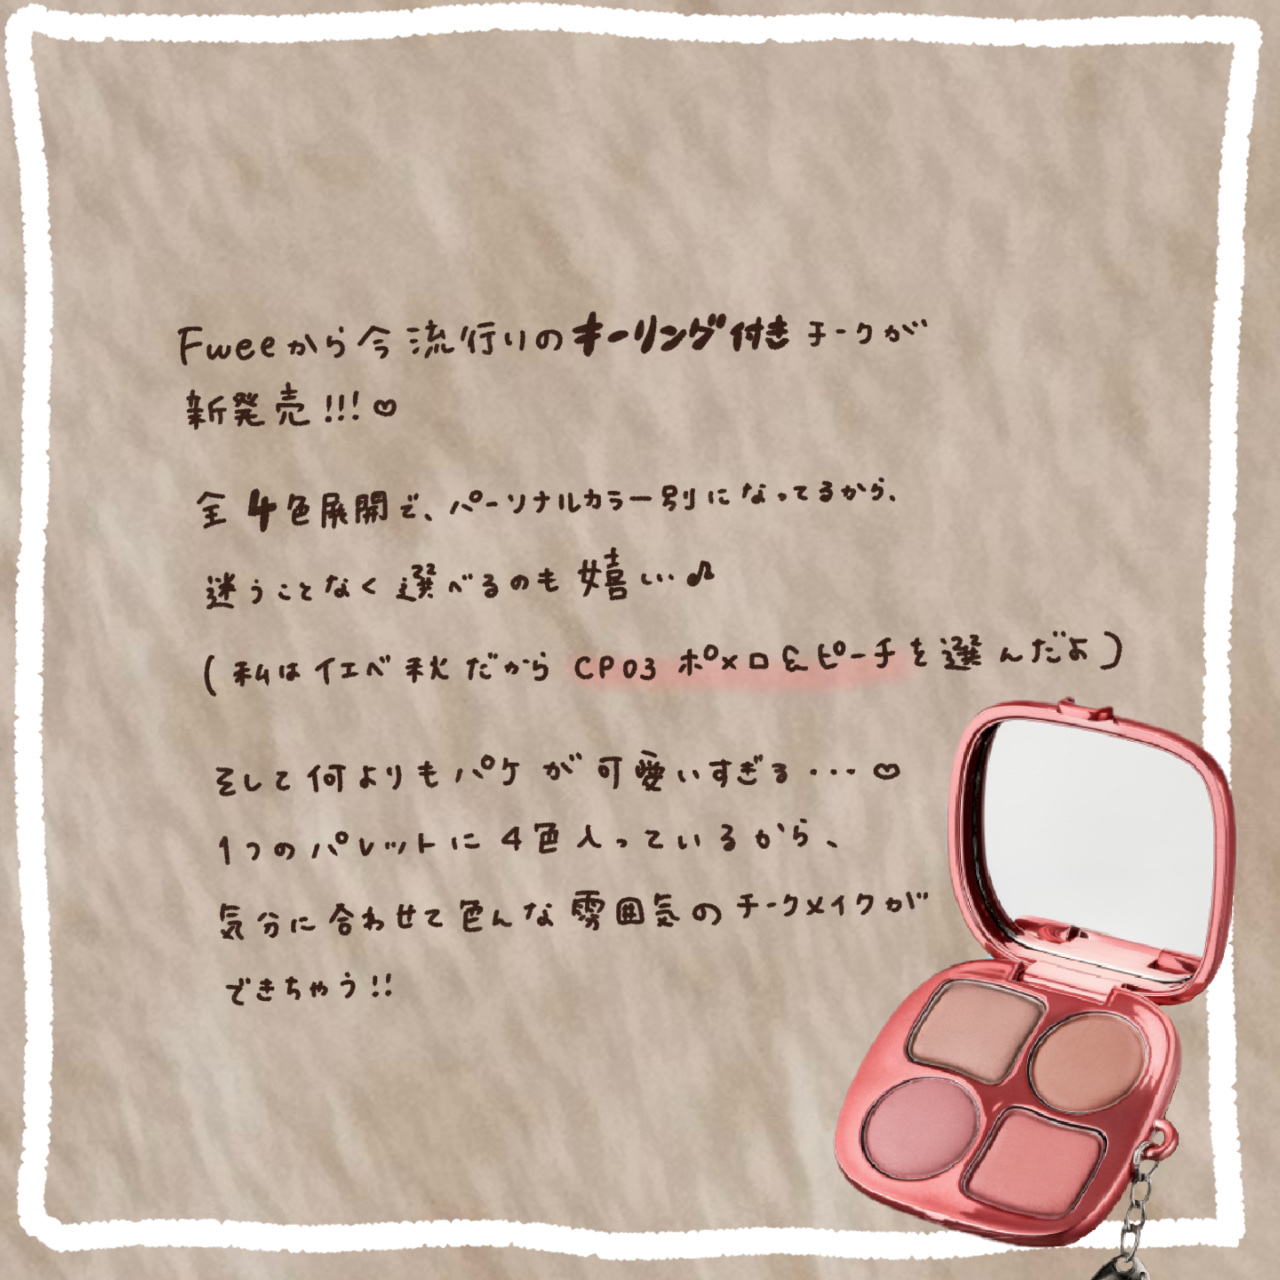 Fweeから今流行りのキーリング付きチークが
新発売!!!♡
全4色展開で、パーソナルカラー別になってるから、
迷うことなく選べるのも嬉しい♪
(私はイエベ秋だから CP03 ポメロ&ピーチを選んだよ)
そして何よりもパケが可愛いすぎる...♡
1つのパレットに4色入っているから、
気分に合わせて色んな雰囲気のチークメイクが
できちゃう!!